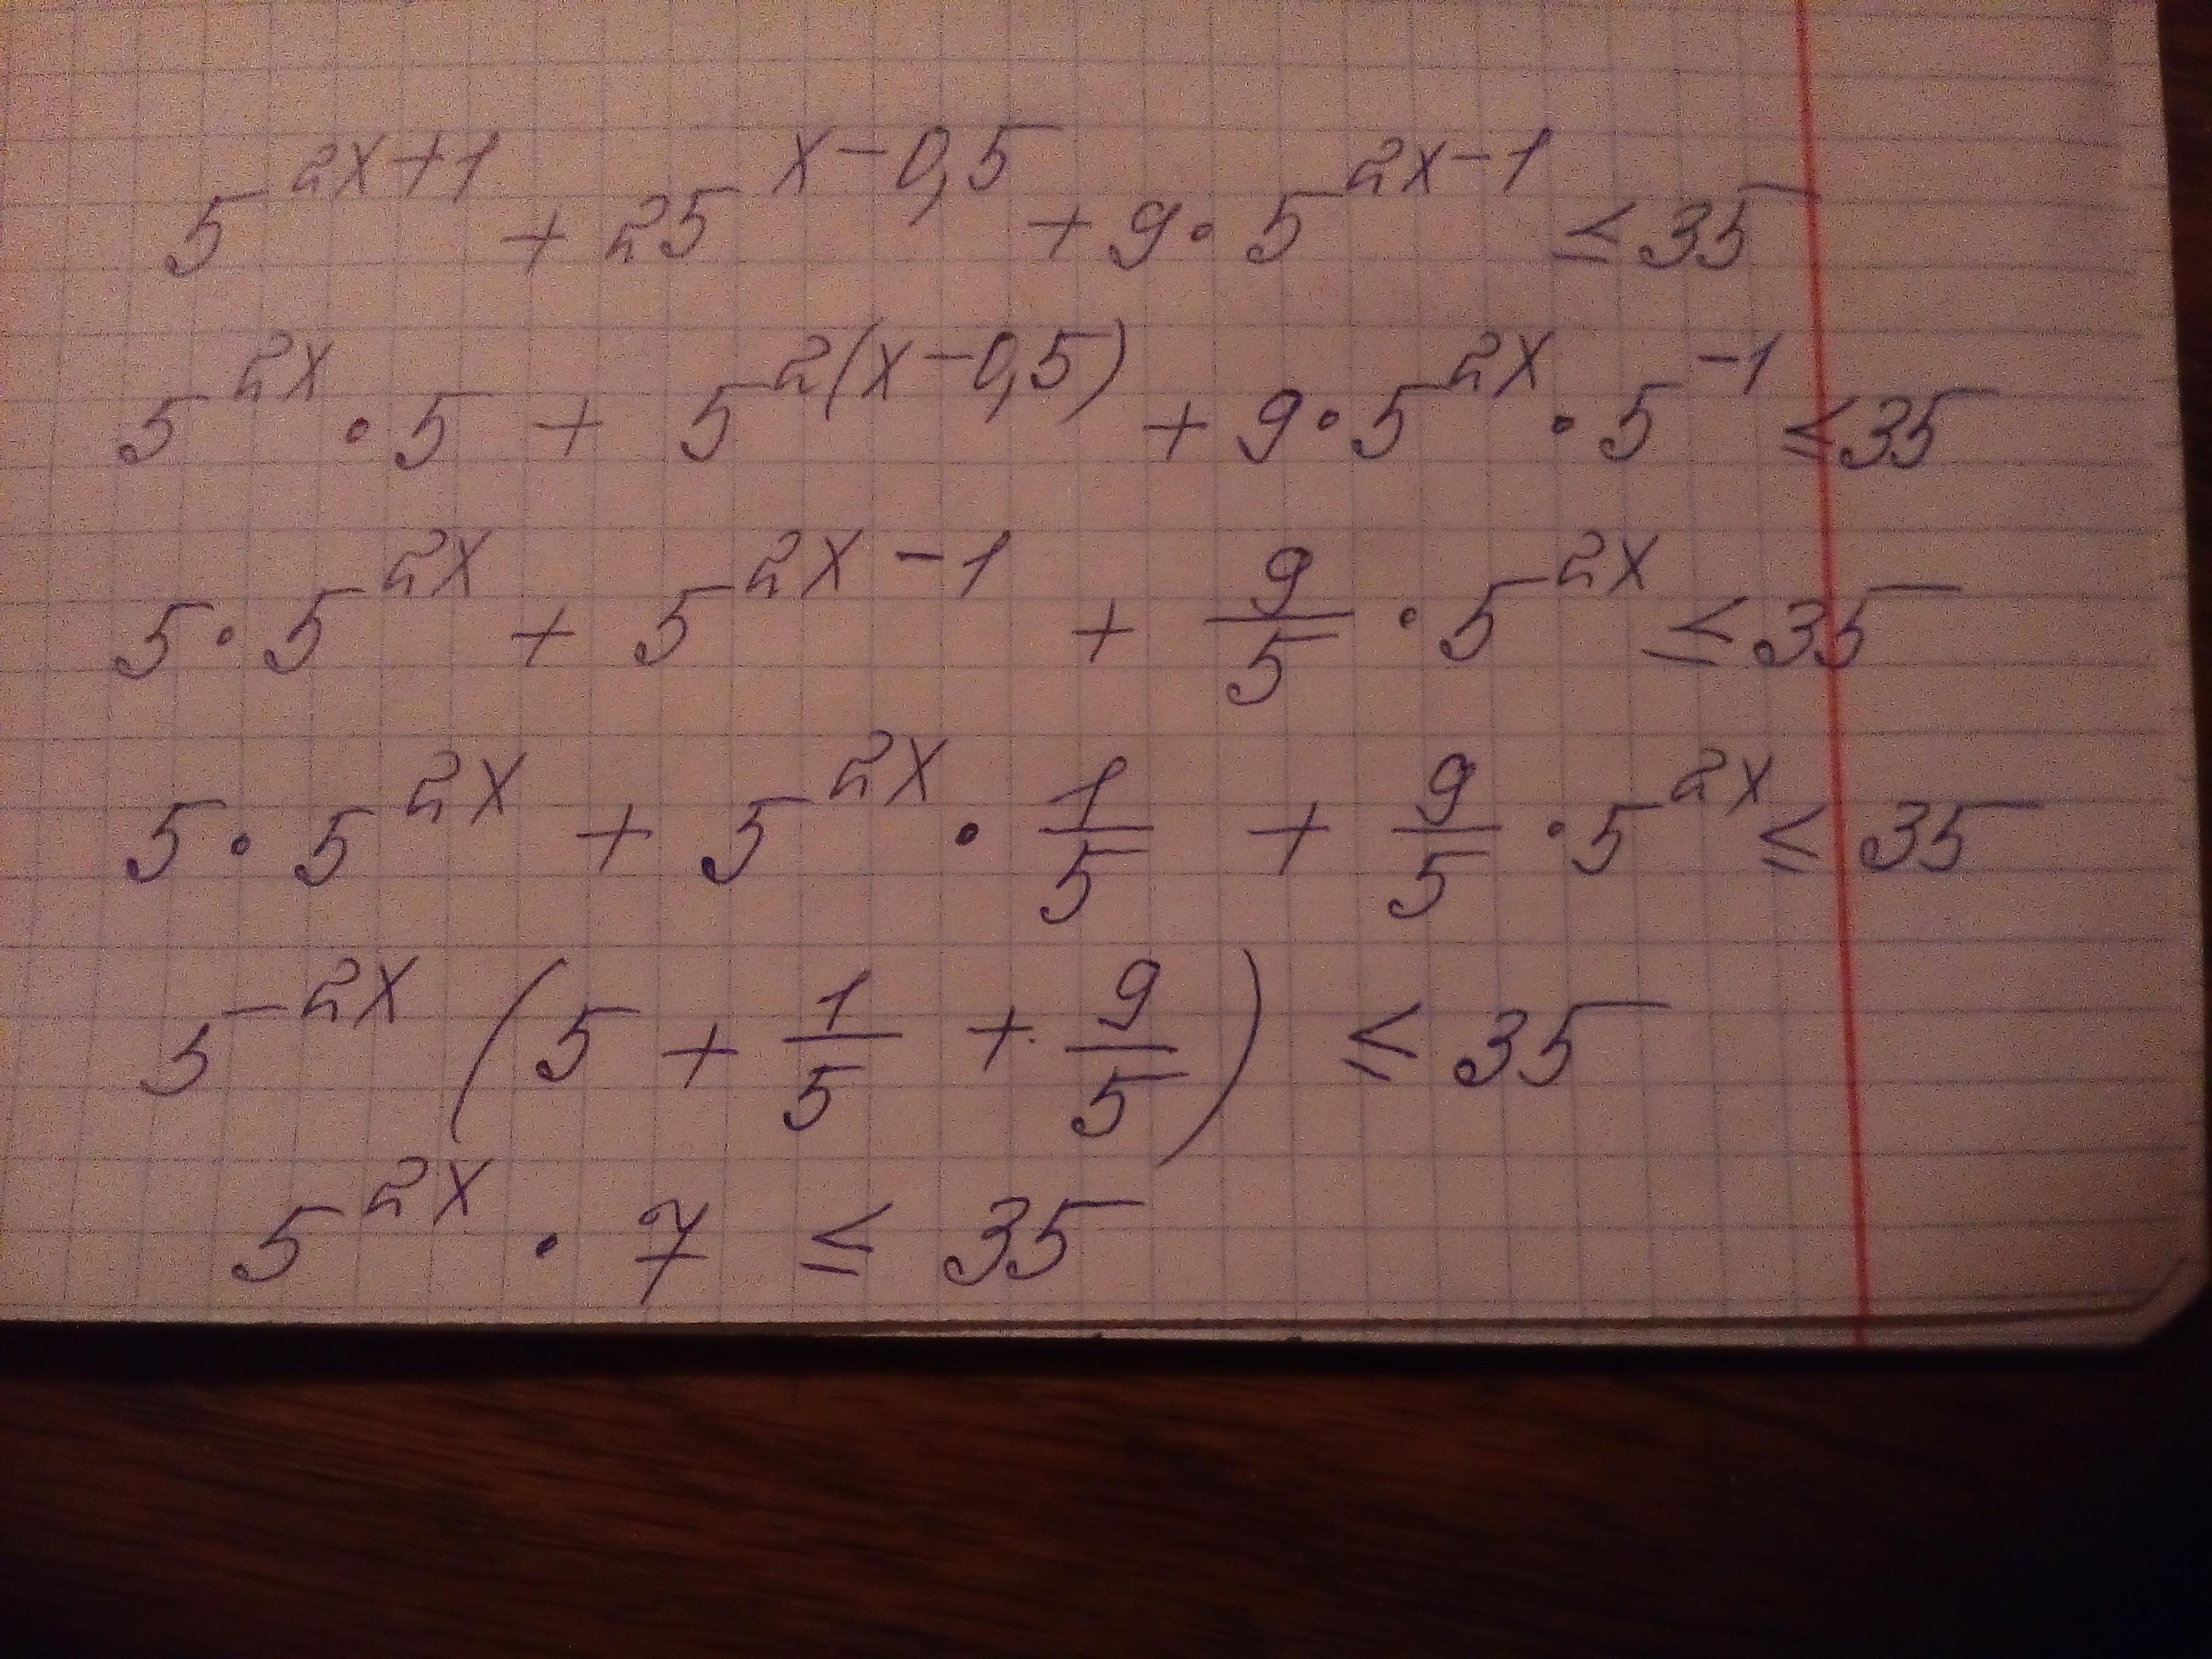 5^{2x+1} + 25^{x-0,5} + 9 · 5^{2x-1} ≤ 35
5^{2x} · 5 + 5^{2(x-0,5)} + 9 · 5^{2x} · 5^{-1} ≤ 35
5 · 5^{2x} + 5^{2x-1} + \frac{9}{5} · 5^{2x} ≤ 35
5 · 5^{2x} + 5^{2x} · \frac{1}{5} + \frac{9}{5} · 5^{2x} ≤ 35
5^{2x} (5 + \frac{1}{5} + \frac{9}{5}) ≤ 35
5^{2x} · 7 ≤ 35